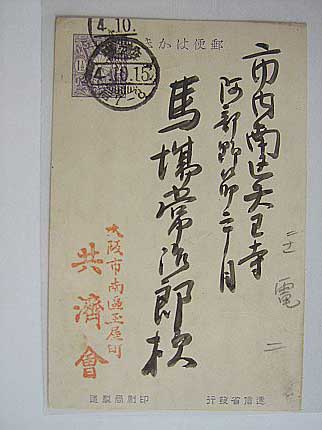 郵便はかき
4.10.
4.10.15
市内南区天王寺
阿部野
馬場常治郎様
大阪市南區玉屋町
共濟會
電
二
遞信省發行
印刷局製造